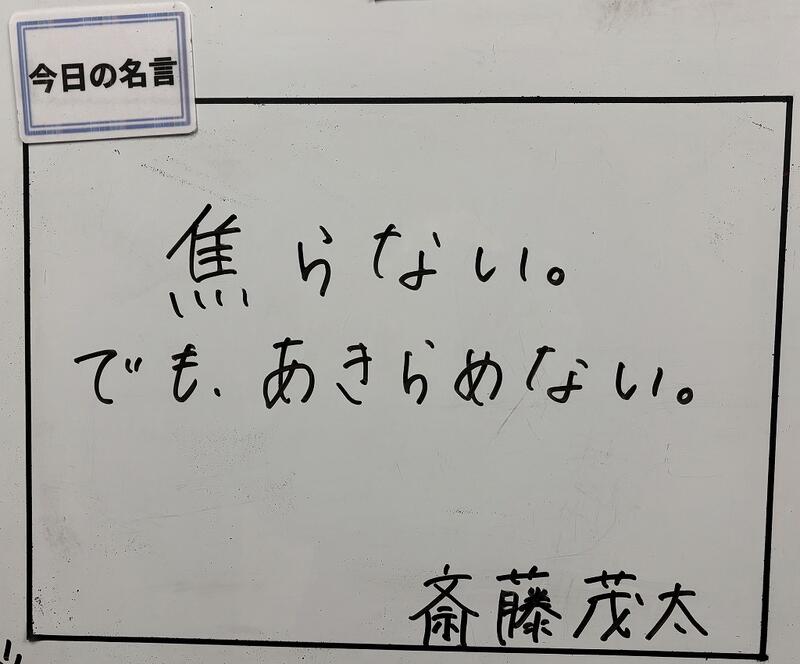 今日の名言
焦らない。
でも、あきらめない。
斎藤茂太